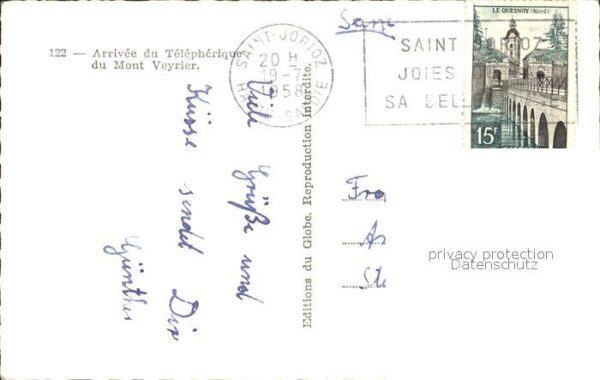 122 — Arrivée du Téléphérique
du Mont Veyrier.
SAINT-JORIOZ
20 H
19-7
1958
HAUTE-SAVOIE
SAINT JORIOZ
JOIES
SA BEL
LE QUESNOY (Nord)
15F
Viele Grüße und
Küsse sendet Dir
Günther
Editions du Globe. Reproduction interdite.
Fra
An
Ste
privacy protection
Datenschutz